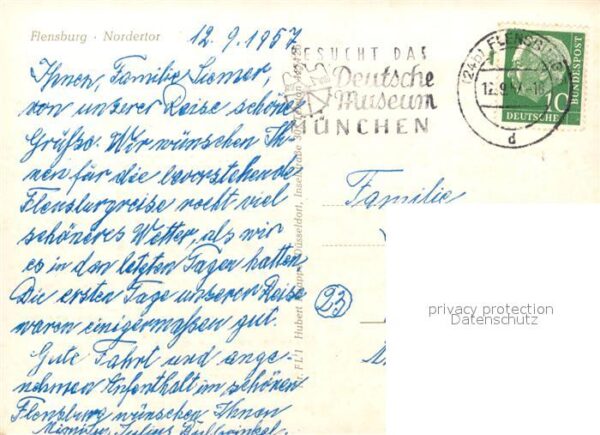 Flensburg · Nordertor
12.9.1957
Ihnen, Familie
von unserer Reise schöne
Grüße. Wir wünschen Ih-
nen für die bevorstehende
Flensburgreise recht viel
schöneres Wetter, als wir
es in den letzten Tagen hatten.
Die ersten Tage unserer Reise
waren einigermaßen gut.
Gute Fahrt und ange-
nehmen Aufenthalt im schönen
Flensburg wünschen Ihnen
Julius
BESUCHT DAS
Deutsche
Museum
MÜNCHEN
(24b) FLENSBURG
12.9.57
d
10
DEUTSCHE
BUNDESPOST
Familie
23
FL 1 Hubert Düsseldorf,
privacy protection
Datenschutz